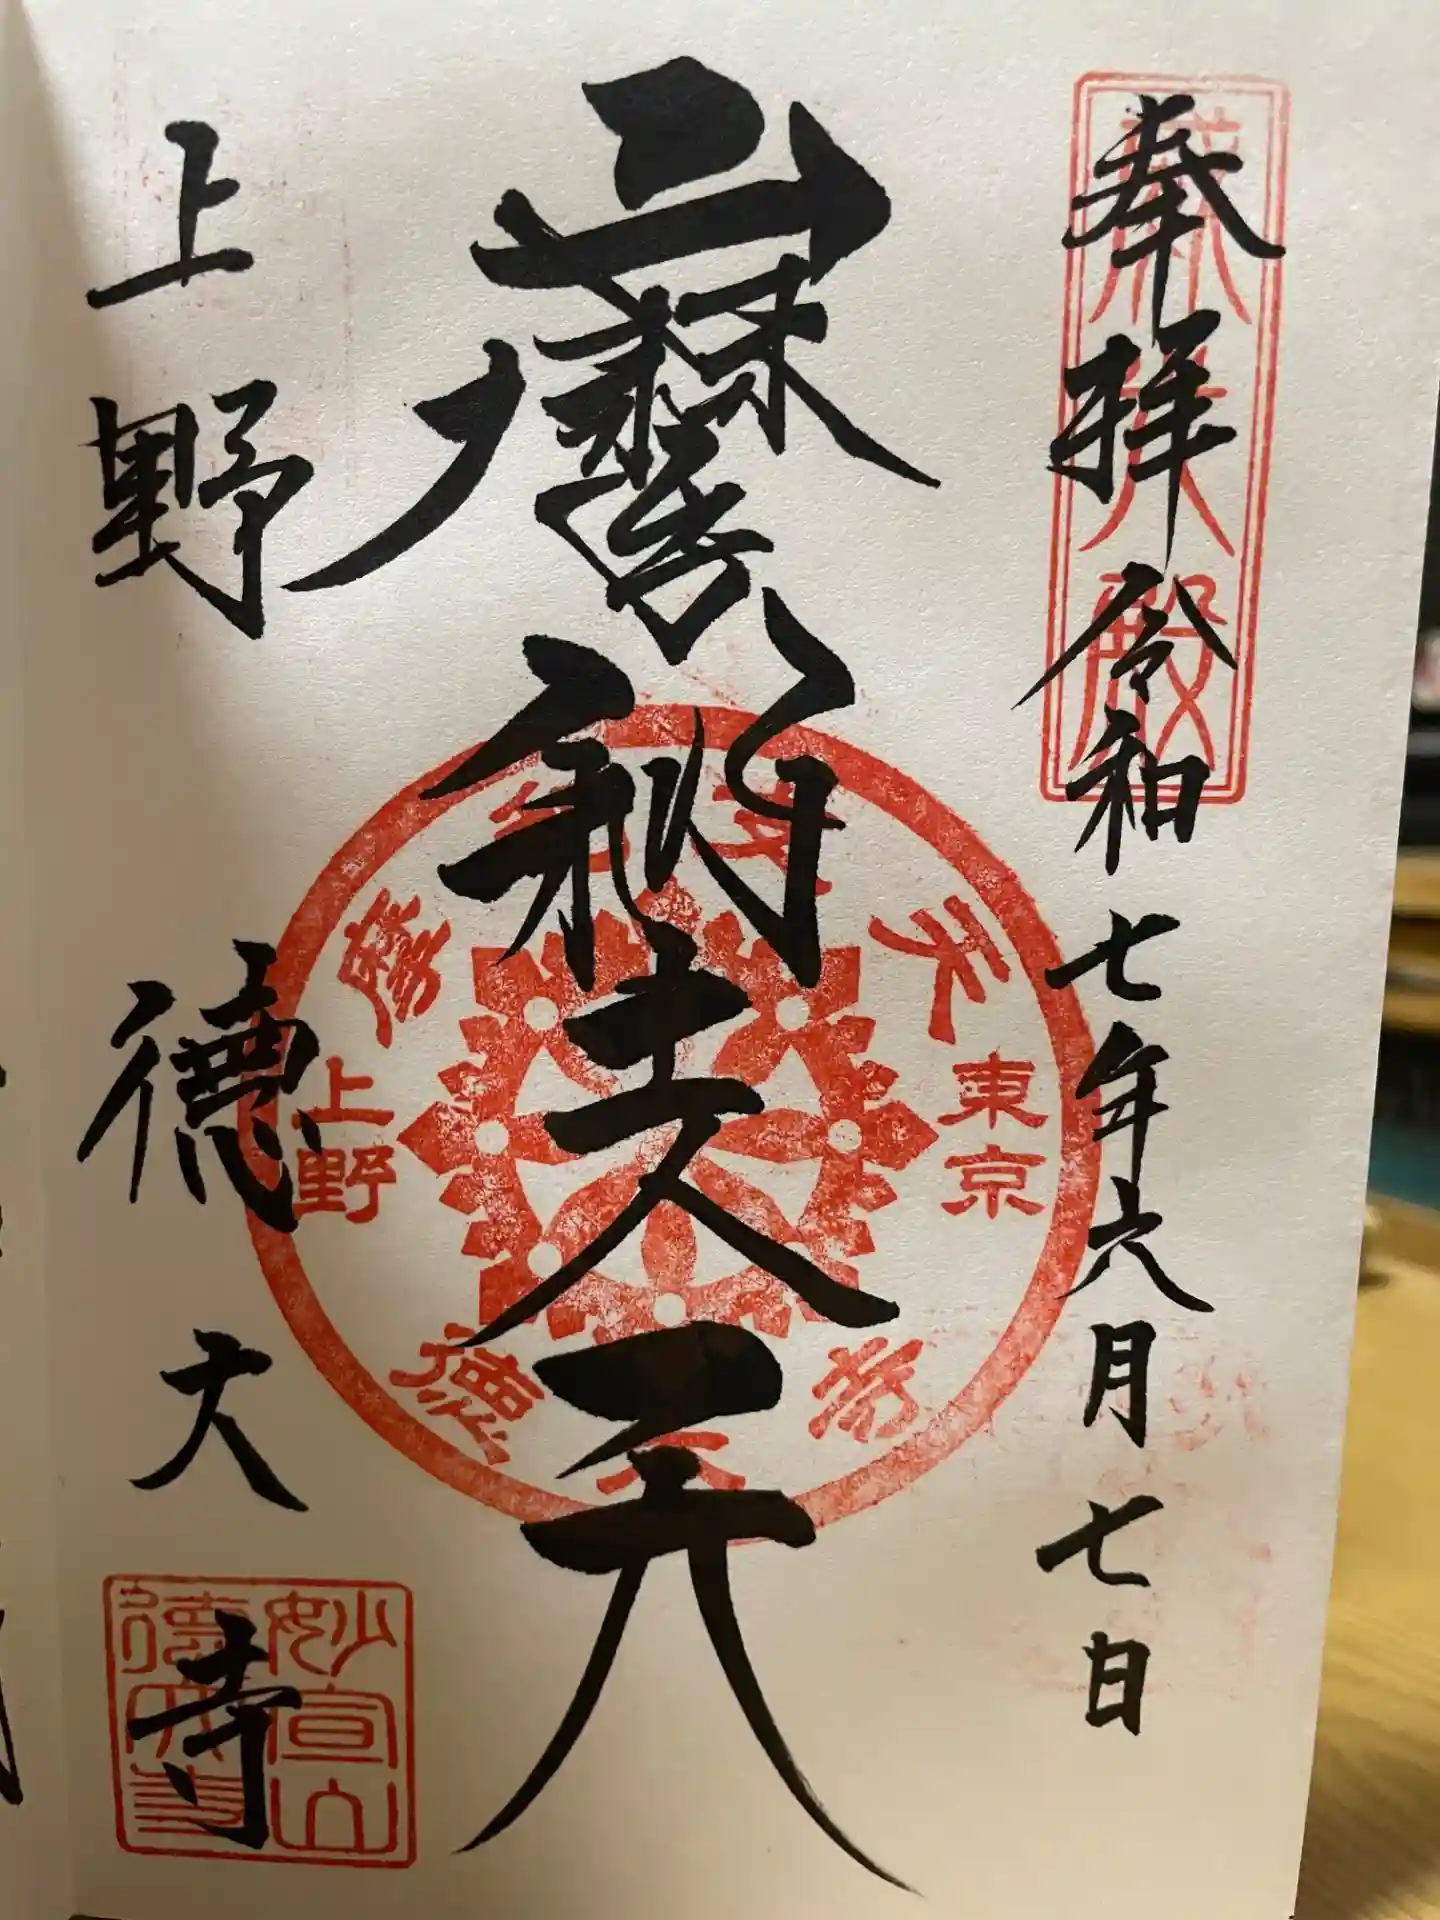 奉拝 令和七年六月七日
摩利支天
上野 徳大寺
摩利支天
東京
上野
徳大寺
妙宣山
徳大寺